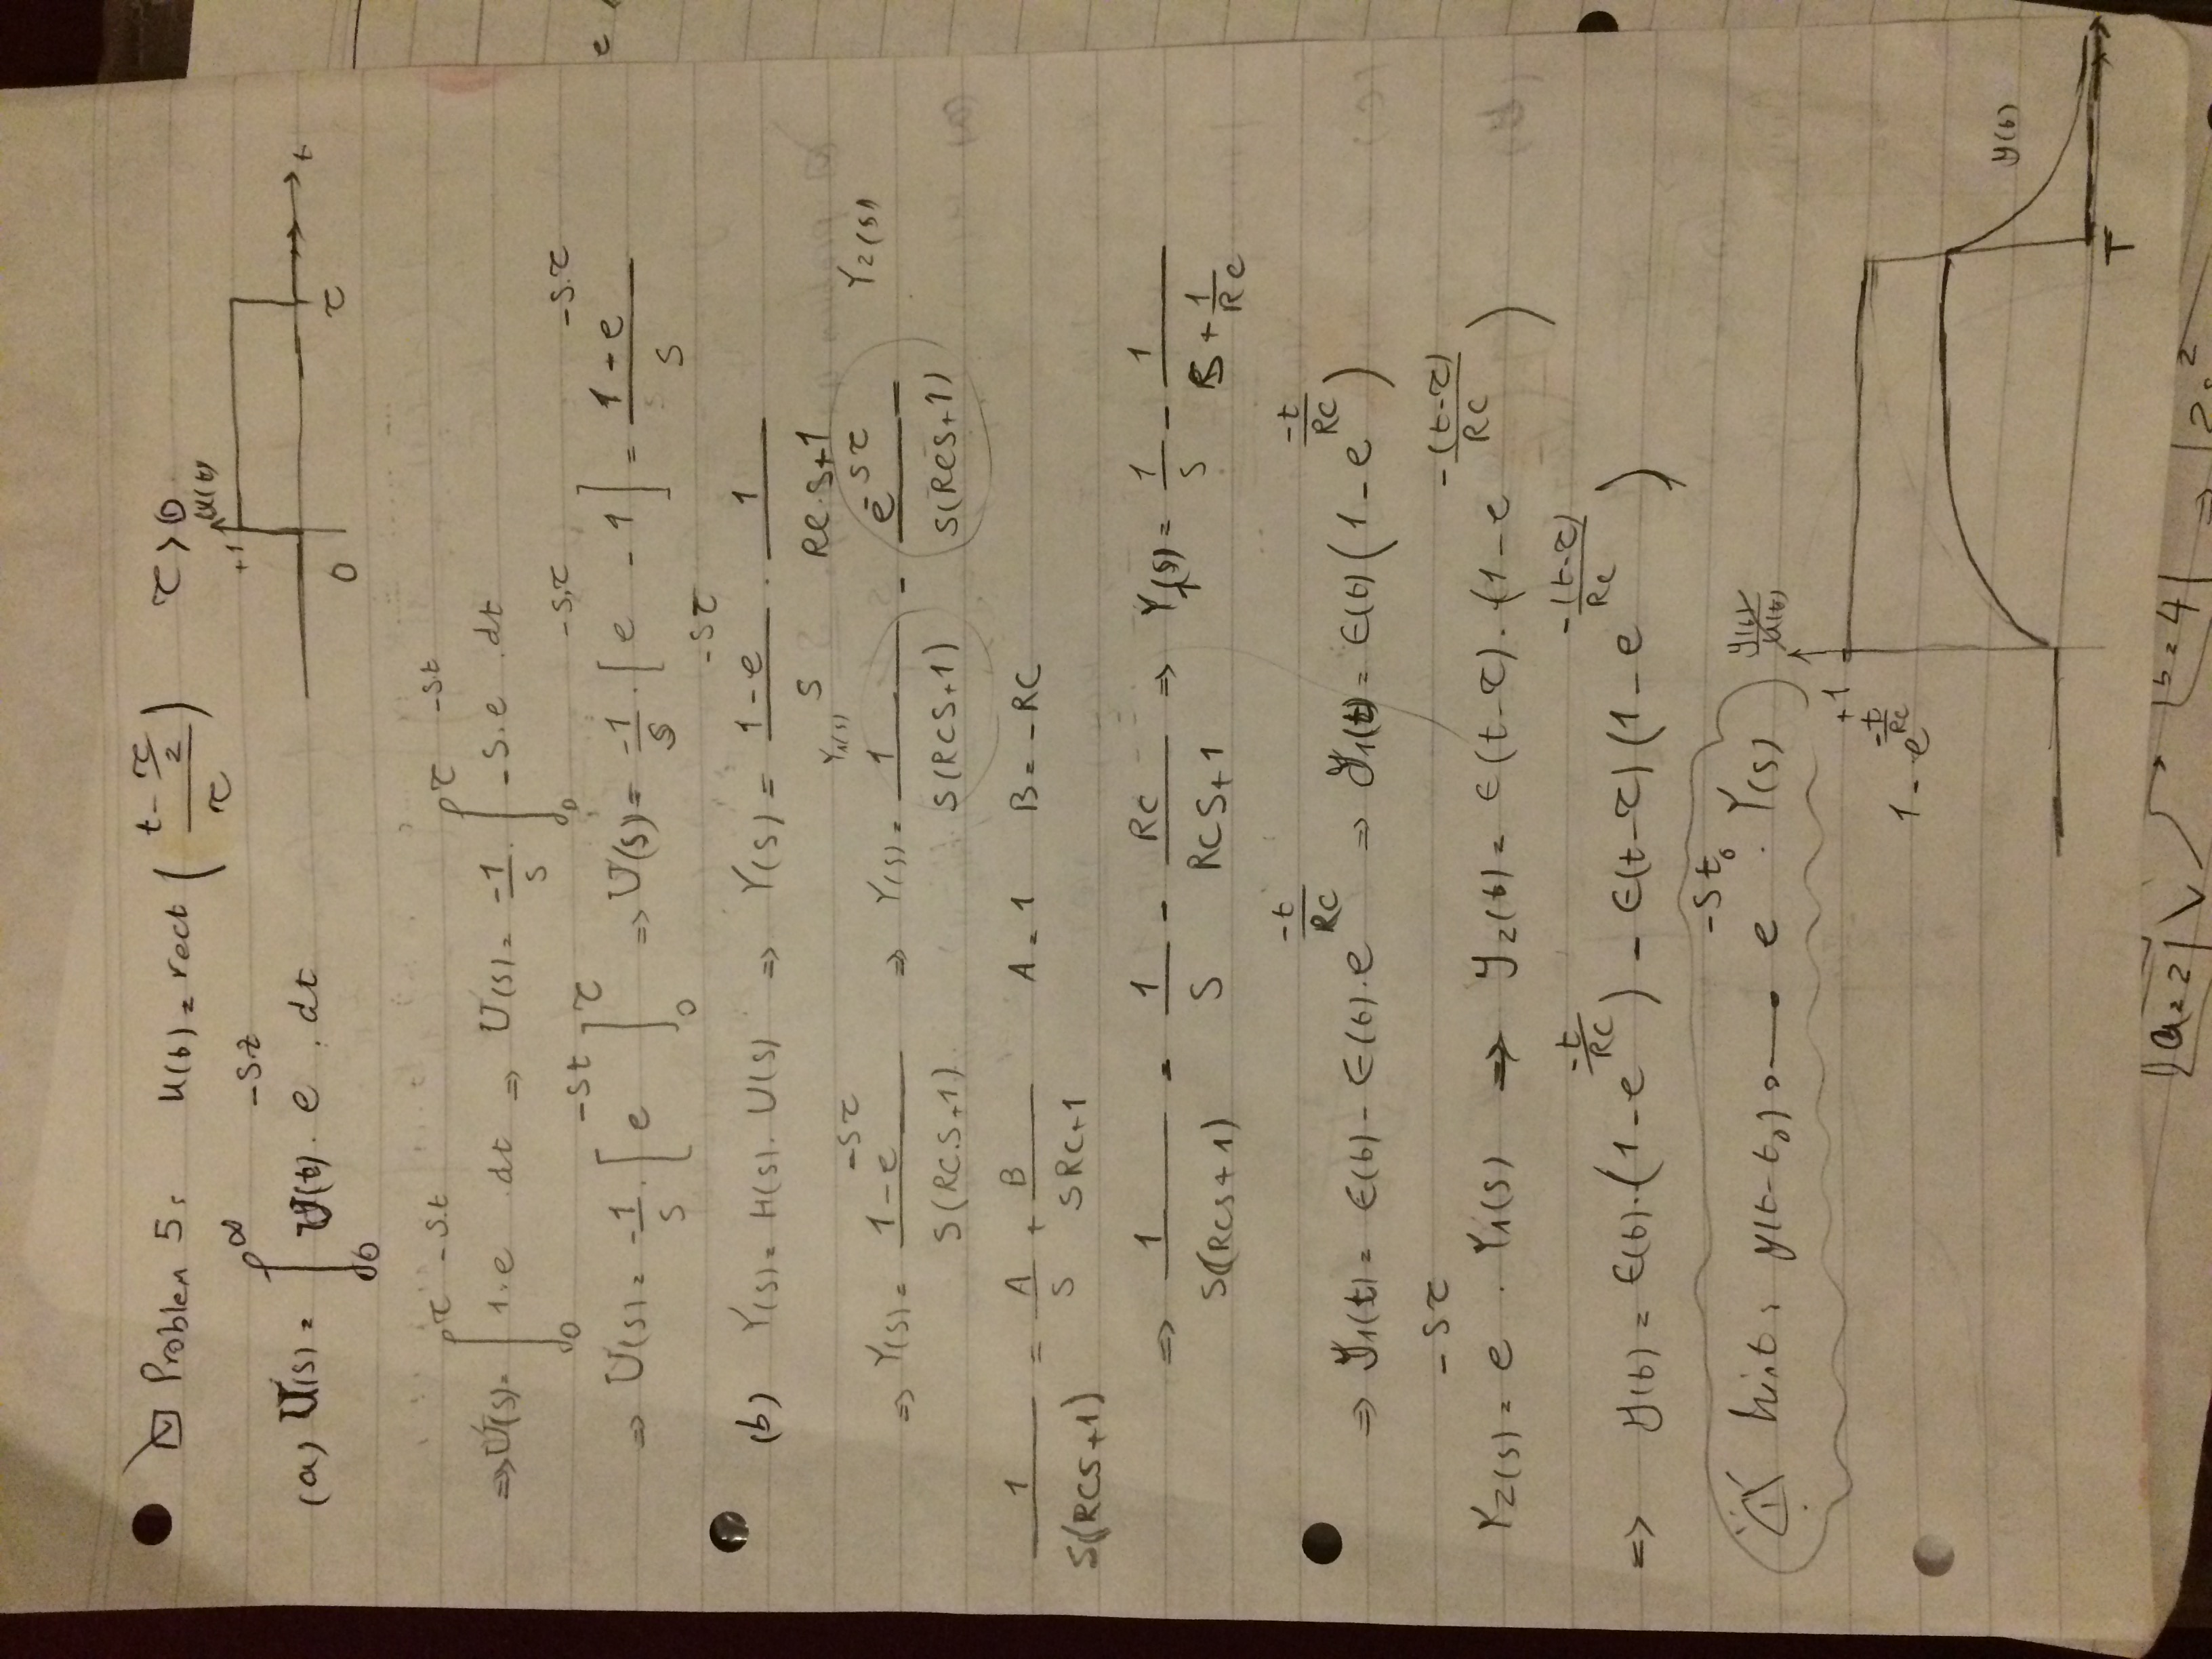 ☑ Problem 5: u(t) = rect( (t - τ/2) / τ ) τ > 0
u(t)
+1
0 τ t
(a) U(s) = ∫₀^∞ u(t) · e^{-s·t} · dt
⇒ U(s) = ∫₀^τ 1·e^{-s·t} dt ⇒ U(s) = -1/s · ∫₀^τ -s·e^{-s·t} · dt
⇒ U(s) = -1/s · [ e^{-st} ]₀^τ ⇒ U(s) = -1/s · [ e^{-s·τ} - 1 ] = (1 - e^{-s·τ}) / s
(b) Y(s) = H(s) · U(s) ⇒ Y(s) = (1 - e^{-sτ}) / s · 1 / (RC·s+1)
Y₁(s) Y₂(s)
⇒ Y(s) = (1 - e^{-sτ}) / (s(RC·s+1)) ⇒ Y(s) = 1 / (s(RCs+1)) - e^{-sτ} / (s(RCs+1))
1 / (s(RCs+1)) = A/s + B/(sRC+1) A = 1 B = -RC
⇒ 1 / (s(RCs+1)) = 1/s - RC / (RCs+1) ⇒ Y₁(s) = 1/s - 1 / (s + 1/RC)
⇒ y₁(t) = ϵ(t) - ϵ(t)·e^{-t/RC} ⇒ y₁(t) = ϵ(t) ( 1 - e^{-t/RC} )
Y₂(s) = e^{-sτ} · Y₁(s) ⇒ y₂(t) = ϵ(t-τ) · (1 - e^{-(t-τ)/RC} )
⇒ y(t) = ϵ(t)·(1 - e^{-t/RC}) - ϵ(t-τ) (1 - e^{-(t-τ)/RC} )
⚠ hint: y(t-t₀) ○—● e^{-st₀} · Y(s)
y(t)
u(t)
+1
1 - e^{-t/RC}
y(t)
T
a = 2 b = 4 ⇒